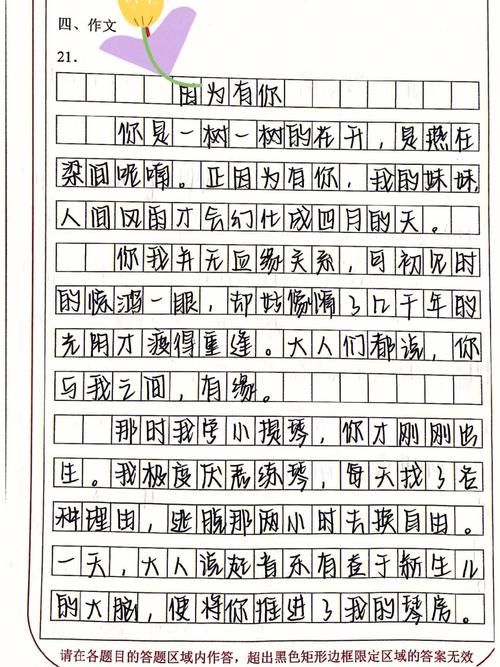 四、作文
21.
因为有你
你是一树一树的花开，是燕在
梁间呢喃。正因为有你，我的妹妹，
人间风雨才会幻化成四月的天。
你我并无血缘关系，可初见时
的惊鸿一眼，却好像隔了几千年的
光阴才获得重逢。大人们都说，你
与我之间，有缘。
那时我学小提琴，你才刚刚出
生。我极度厌恶练琴，每天找了各
种理由，逃脱那两小时去换自由。
一天，大人说起音乐有查于新生儿
的大脑，便将你推进了我的琴房。
请在各题目的答题区域内作答，超出黑色矩形边框限定区域的答案无效